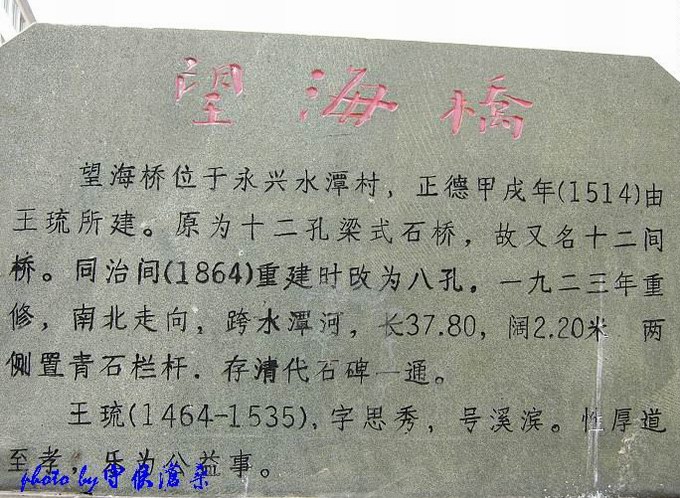 望海橋
望海桥位于永兴水潭村，正德甲戌年(1514)由
王琉所建。原为十二孔梁式石桥，故又名十二间
桥。同治间(1864)重建时改为八孔。一九二三年重
修，南北走向，跨水潭河，长37.80，阔2.20米 两
侧置青石栏杆．存清代石碑一通。
王琉(1464-1535),字思秀，号溪滨。性厚道
至孝，乐为公益事。
photo by 守候滄桑